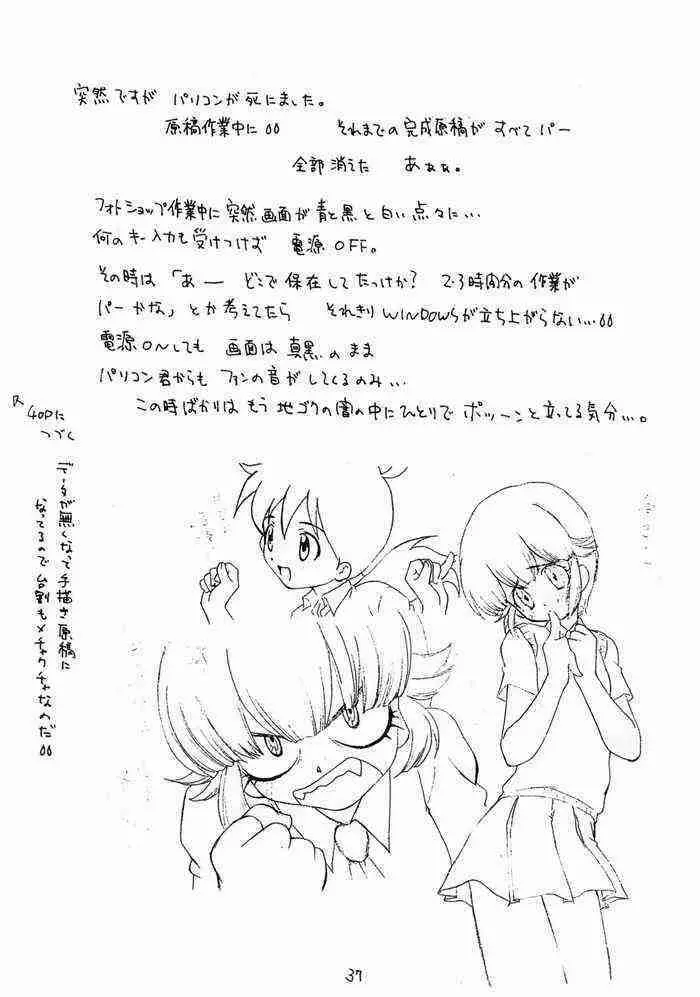 突然ですが パソコンが死にました。
原稿作業中に それまでの完成原稿が すべてパー
全部消えた あぁぁ。
フォトショップ作業中に突然画面が青と黒と白い点々に…
何のキー入力も受けつけず 電源OFF。
その時は「あー どこで保存してたっけか? 2・3時間分の作業が
パーかな」とか考えてたら それきりWINDOWSが立ち上がらない…
電源ONしても 画面は真黒のまま
パソコン君からも ファンの音がしてくるのみ…
この時ばかりは もう 地ゴクの闇の中にひとりで ポツーンと立ってる気分…。
40Pに
つづく
データが無くなって手描き原稿に
なってるので台割もメチャクチャなのだ
37